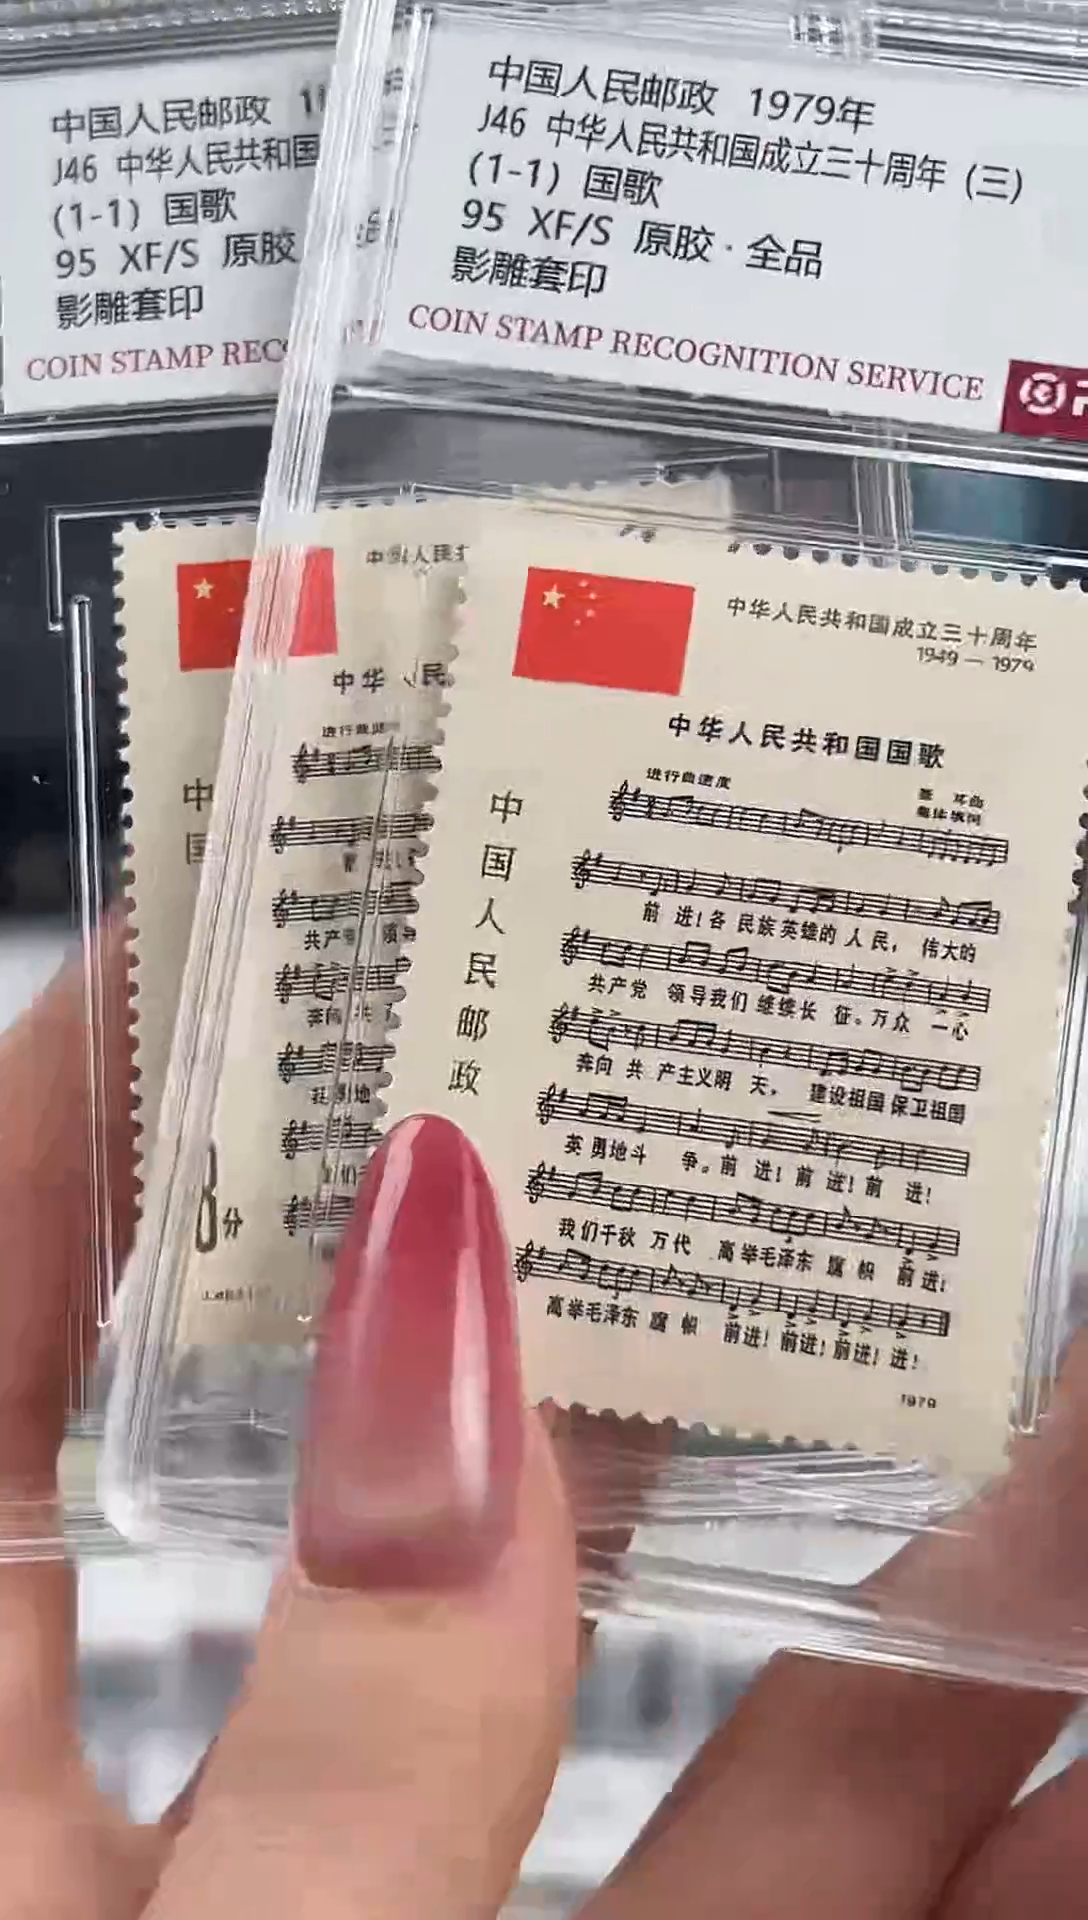 中国人民邮政 1979年
J46 中华人民共和国成立三十周年 (三)
(1-1) 国歌
95 XF/S 原胶·全品
影雕套印
COIN STAMP RECOGNITION SERVICE
中国人民邮政
J46 中华人民共和国
(1-1) 国歌
95 XF/S 原胶
影雕套印
COIN STAMP REC
中华人民共和国成立三十周年
1949-1979
中华人民共和国国歌
进行曲速度
聂 耳曲
集体填词
中国人民邮政
前 进! 各 民族 英雄的 人 民, 伟大的
共产党 领导我们 继续长 征。万众 一心
奔向 共 产主义明 天, 建设祖国 保卫祖国
英 勇地斗 争。前 进! 前 进! 前 进!
我们千秋 万代 高举毛泽东 旗 帜 前进!
高举毛泽东 旗 帜 前进! 前进! 前进! 进!
1979
中华 民
进行曲速
中
国
共产 领导
8分